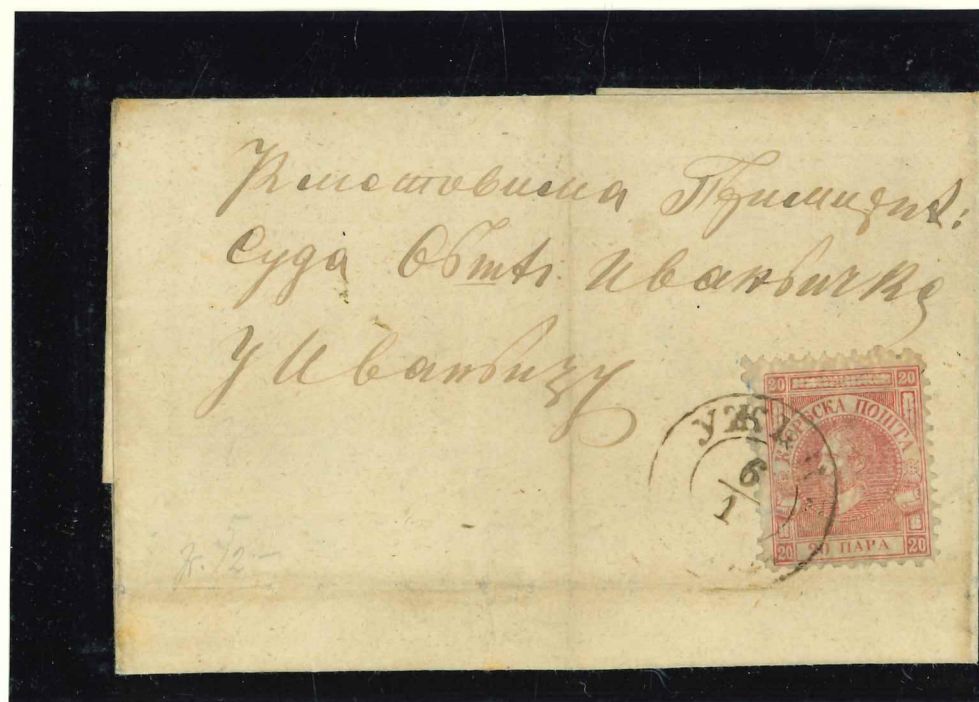 Кметовима Примирит:
Суда Общт. Иваньичке
у Иваньицу
УЖИ
6
1
20 20
К. СРБСКА ПОШТА
20 20 ПАРА 20